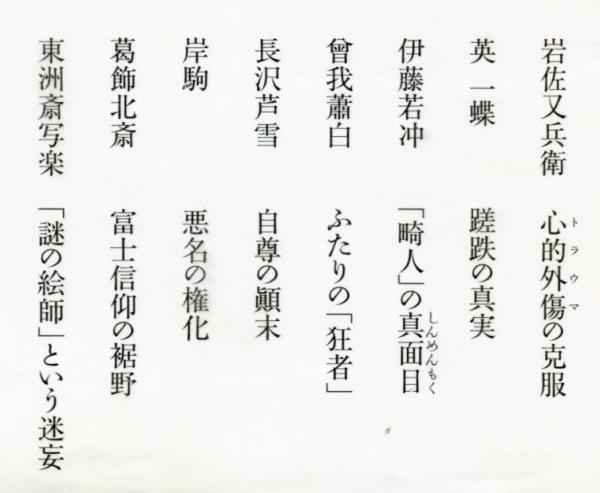 岩佐又兵衛 心的外傷の克服
トラウマ
英 一蝶 蹉跌の真実
伊藤若冲 「畸人」の真面目
しんめんもく
曾我蕭白 ふたりの「狂者」
長沢芦雪 自尊の顚末
岸駒 悪名の権化
葛飾北斎 富士信仰の裾野
東洲斎写楽 「謎の絵師」という迷妄